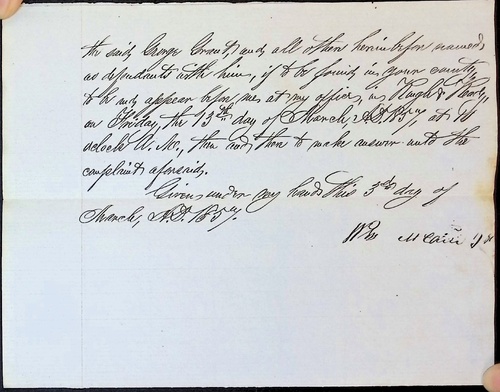 the said George Grant and all others herein before named
as defendants with him, if to be found in your county,
to be and appear before me at my office, in Rough & Ready,
on Friday, the 13th day of March A.D. 1857, at 10
oclock A.M., then and there to make answer unto the
complaint aforesaid.
Given under my hand this 3rd day of
March, A.D. 1857.
Wm